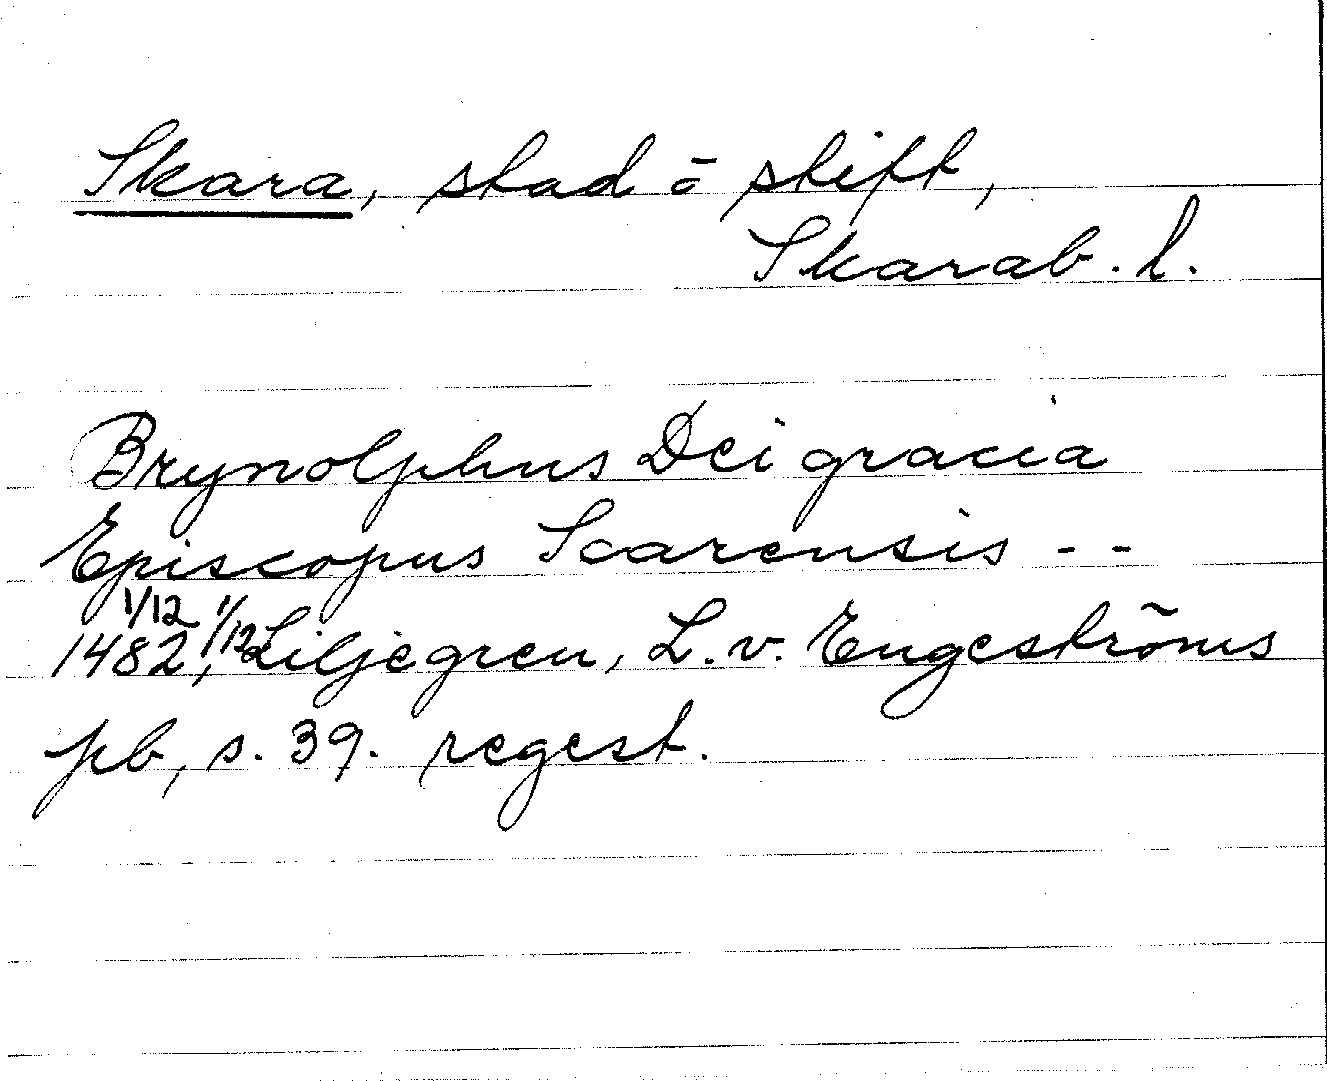 Skara, stad o stift,
Skarab. l.
Brynolphus Dei gracia
Episcopus Scarensis --
1/12 1/12
1482, Liljegren, L. v. Engeströms
pb, s. 39. regest.